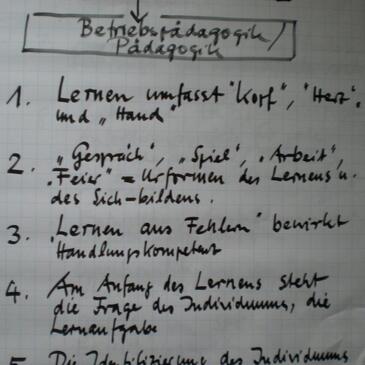 Betriebspädagogik/
Pädagogik
1. Lernen umfasst "Kopf", "Herz"
und „Hand"
2. „Gespräch", „Spiel", „Arbeit",
„Feier" = Urformen des Lernens u.
des Sich-bildens.
3. „Lernen aus Fehlern" bewirkt
Handlungskompetent
4. Am Anfang des Lernens steht
die Frage des Individuums, die
Lernaufgabe
5. Die Identifizierung des Individuums